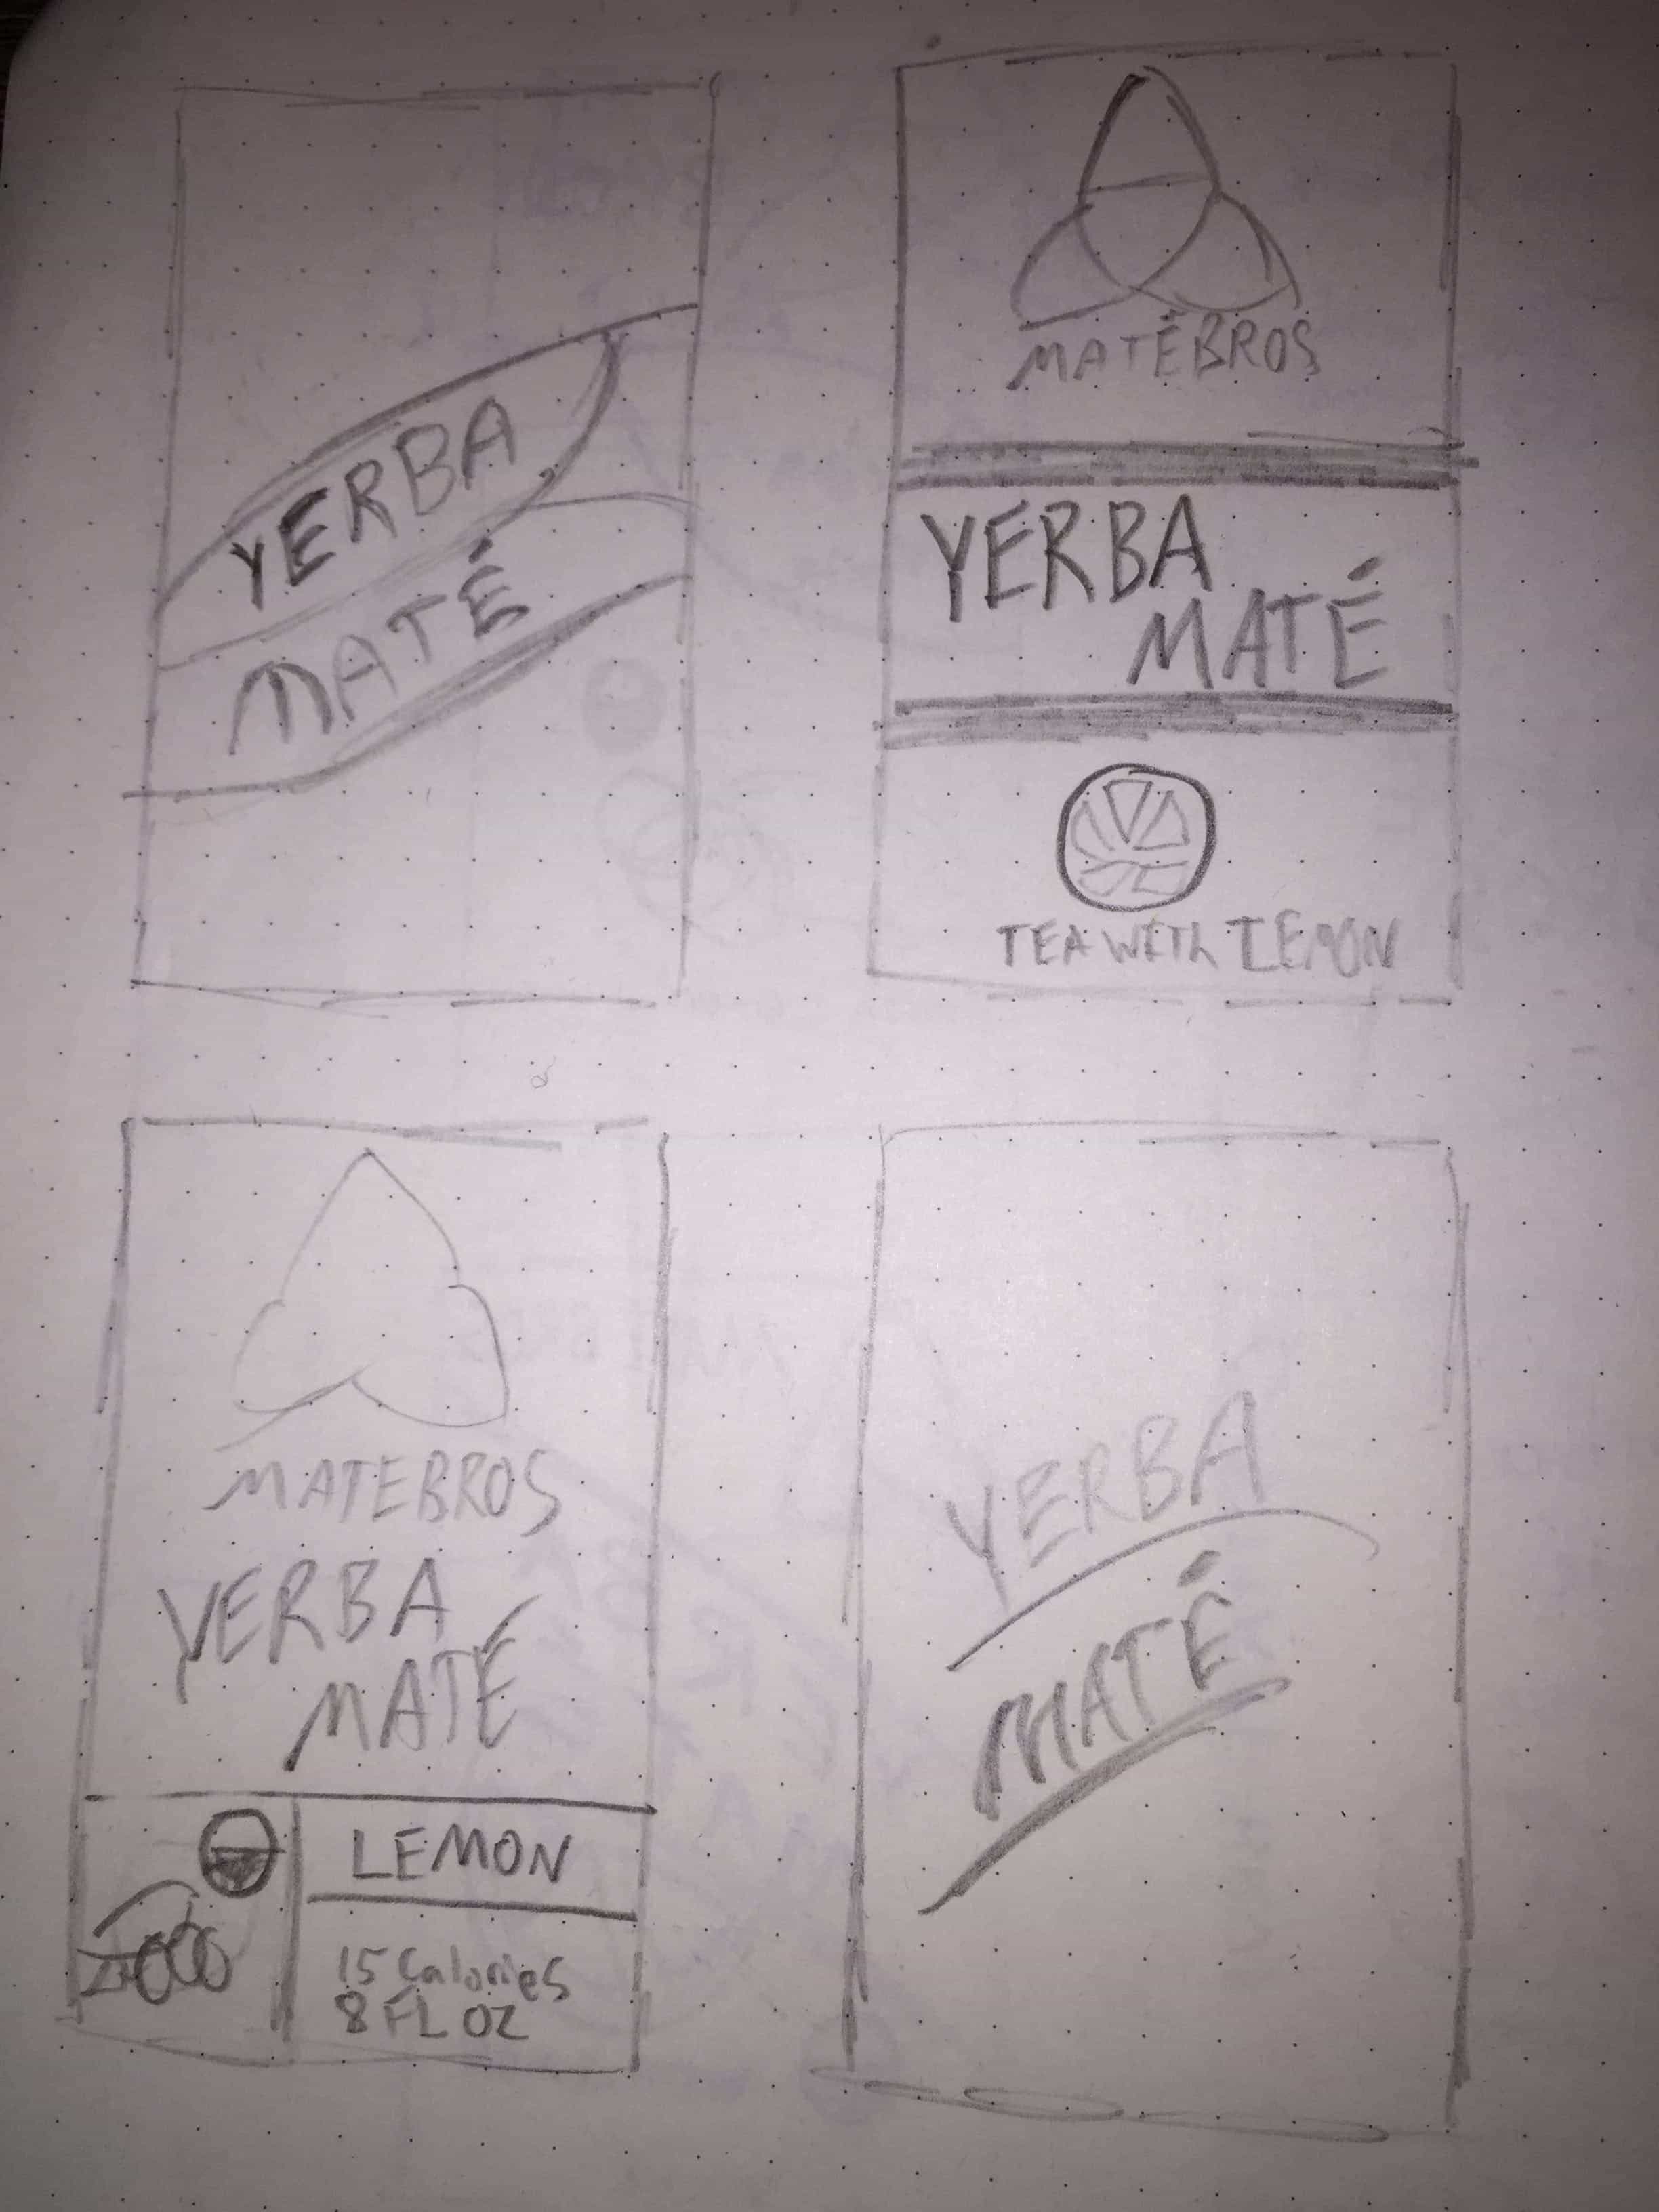 YERBA
MATÉ
MATÉBROS
YERBA
MATÉ
TEA WITH LEMON
MATEBROS
YERBA
MATÉ
LEMON
15 Calories
8 FL OZ
YERBA
MATÉ